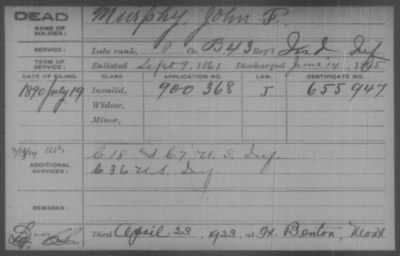 DEAD
NAME OF SOLDIER: Murphy, John F.
SERVICE: Late rank, Co. B 43 Reg't Ind Inf
TERM OF SERVICE: Enlisted Sept 9, 1861 Discharged June 14, 1865
DATE OF FILING. CLASS. APPLICATION NO. LAW. CERTIFICATE NO.
1890 July 19 Invalid, 900 368 J 655 947
Widow,
Minor,
ADDITIONAL SERVICES: C 18 and C 7 U. S. Inf.
C 36 U.S. Inf
REMARKS:
Died April 23, 1923, at Ft. Benton, Mont